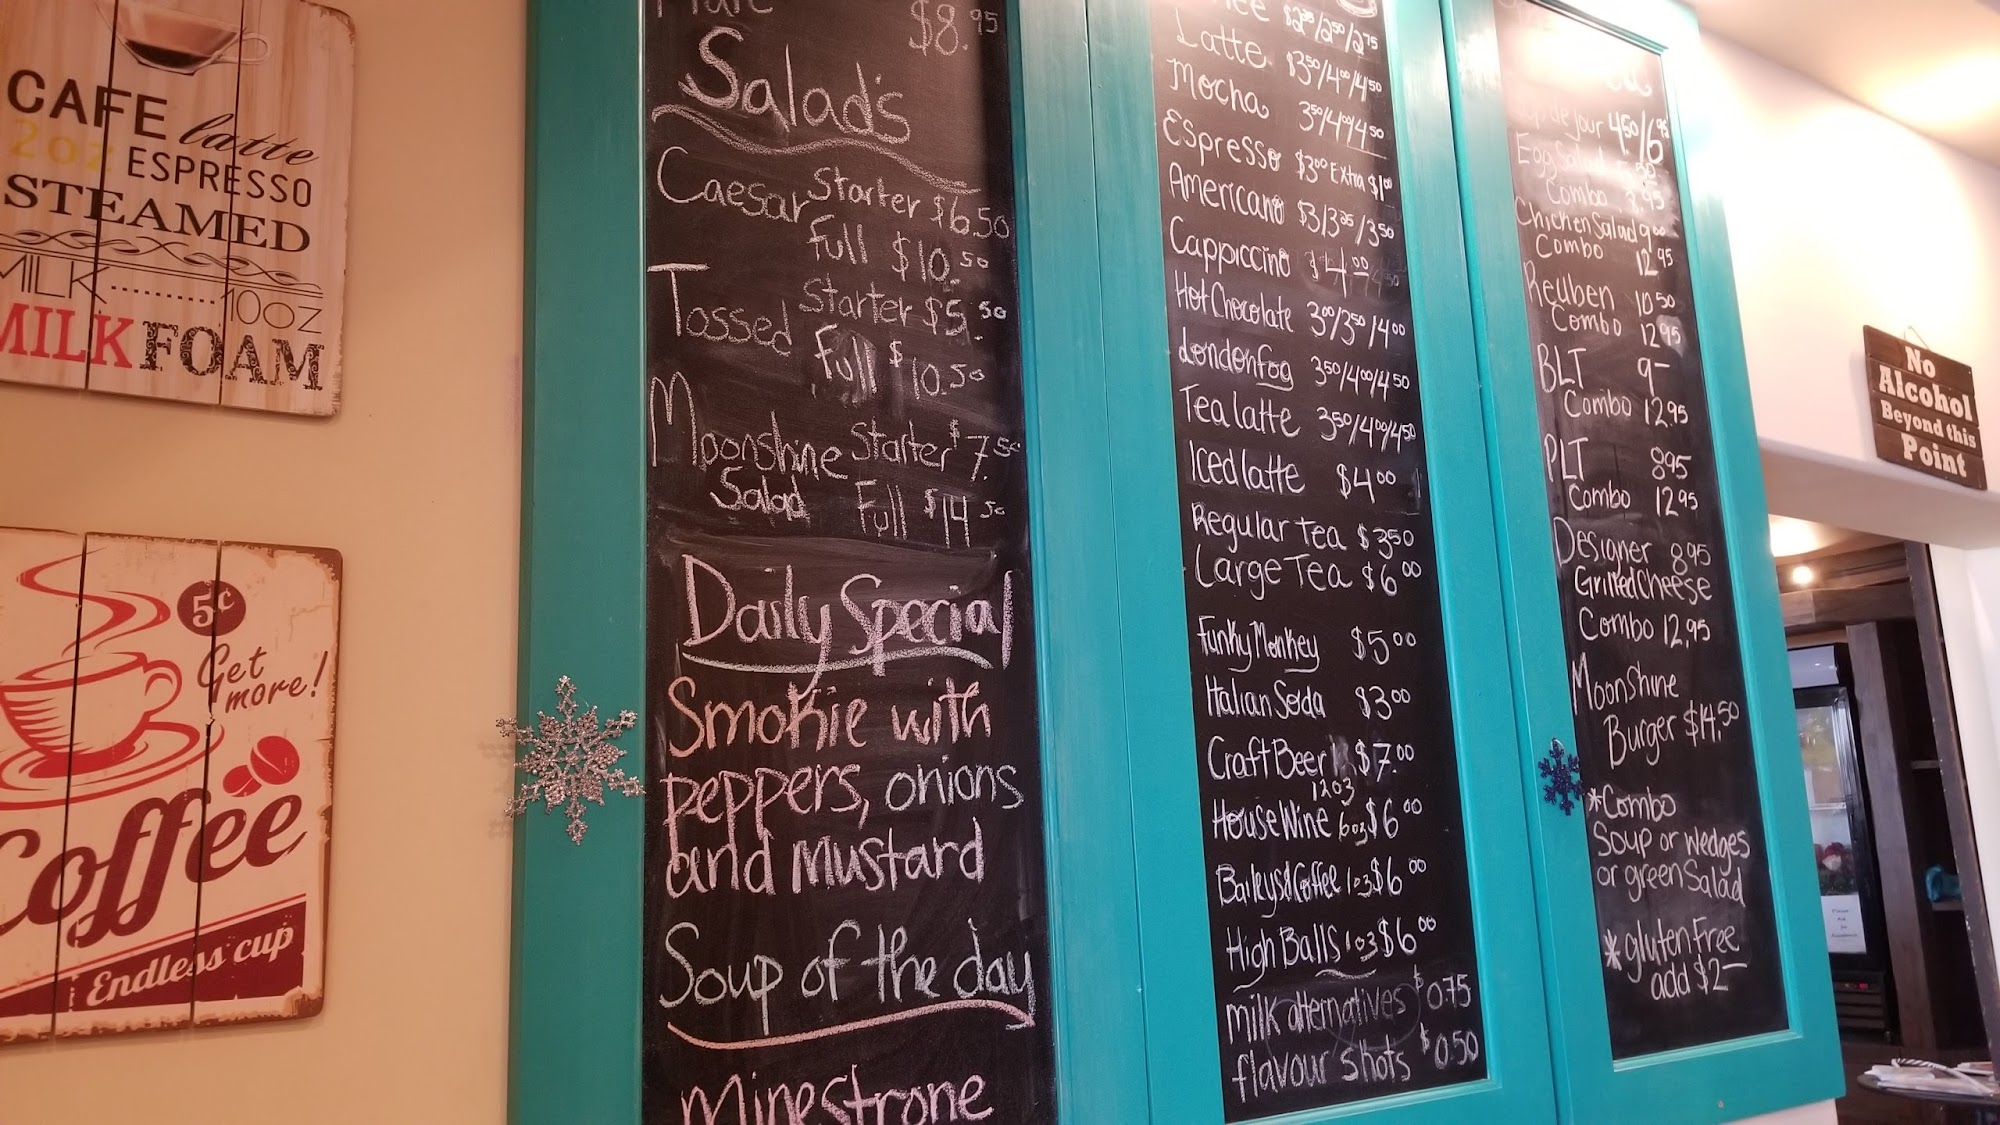 CAFE latte
2oz ESPRESSO
STEAMED
MILK 10OZ
MILK FOAM
5¢
Get
more!
Coffee
Endless cup
$8.95
Salad's
Caesar Starter $6.50
Full $10.50
Tossed Starter $5.50
Full $10.50
Moonshine Starter $7.50
Salad Full $14.50
Daily Special
Smokie with
peppers, onions
and mustard
Soup of the day
Minestrone
$2.25/2.50/2.75
Latte $3.50/4.00/4.50
Mocha 3.50/4.00/4.50
Espresso $3.00 Extra $1.00
Americano $3/3.25/3.50
Cappiccino $4.00
Hot Chocolate 3.00/3.50/4.00
London Fog 3.50/4.00/4.50
Tea latte 3.50/4.00/4.50
Iced latte $4.00
Regular Tea $3.50
Large Tea $6.00
Funky Monkey $5.00
Italian Soda $3.00
Craft Beer $7.00
12oz
House Wine 6oz $6.00
Baileys & Coffee 1oz $6.00
High Balls 1oz $6.00
milk alternatives $0.75
flavour shots $0.50
de jour 4.50/6.95
Egg Salad 5.50
Combo
Chicken Salad 9.00
Combo 12.95
Reuben 10.50
Combo 12.95
BLT 9—
Combo 12.95
PLT 8.95
Combo 12.95
Designer 8.95
Grilled Cheese
Combo 12.95
Moonshine
Burger $14.50
*Combo
Soup or wedges
or green Salad
*gluten Free
add $2—
No
Alcohol
Beyond this
Point